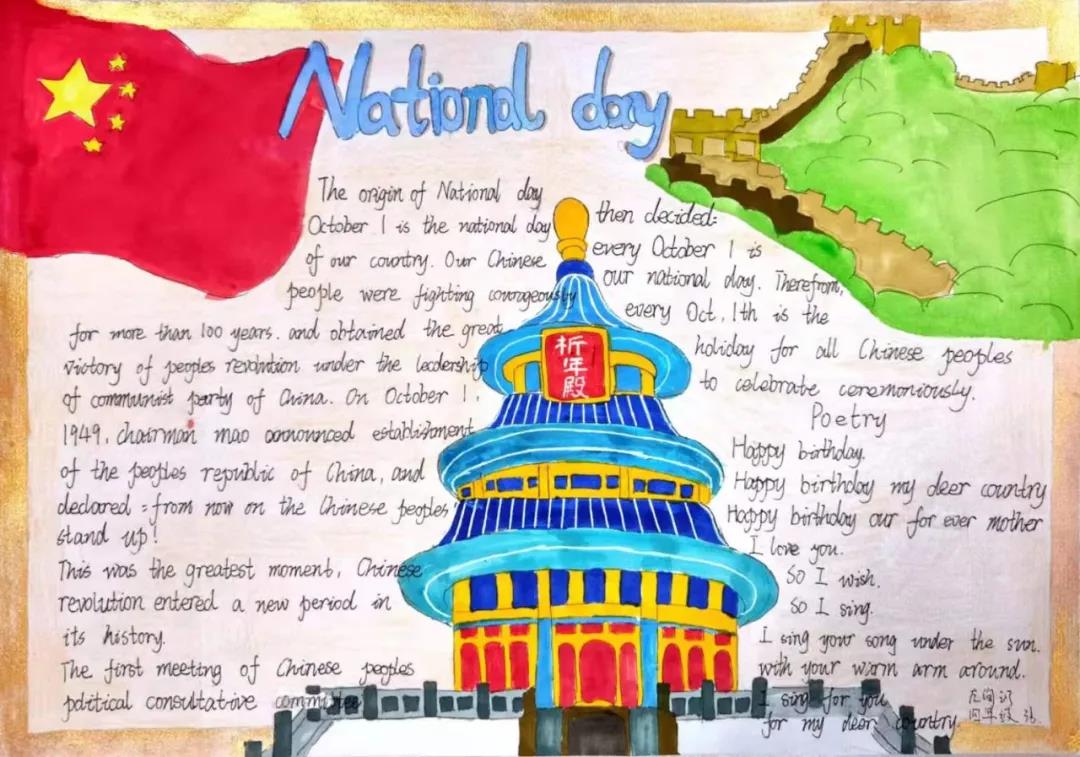 National day
The origin of National day
October 1 is the national day
of our country. Our Chinese
people were fighting courageously
for more than 100 years. and obtained the great
victory of peoples revolution under the leadership
of communist party of China. On October 1,
1949, chairman mao announced establishment
of the peoples republic of China, and
declared = from now on the Chinese peoples
stand up!
This was the greatest moment, Chinese
revolution entered a new period in
its history.
The first meeting of Chinese peoples
political consultative committee
then decided:
every October 1 is
our national day. Therefrom,
every Oct, 1th is the
holiday for all Chinese peoples
to celebrate ceremoniously.
Poetry
Happy birthday.
Happy birthday my deer country
Happy birthday our for ever mother
I love you.
So I wish.
So I sing.
I sing your song under the sun.
with your warm arm around.
I sing for you
for my deer country
祈年殿